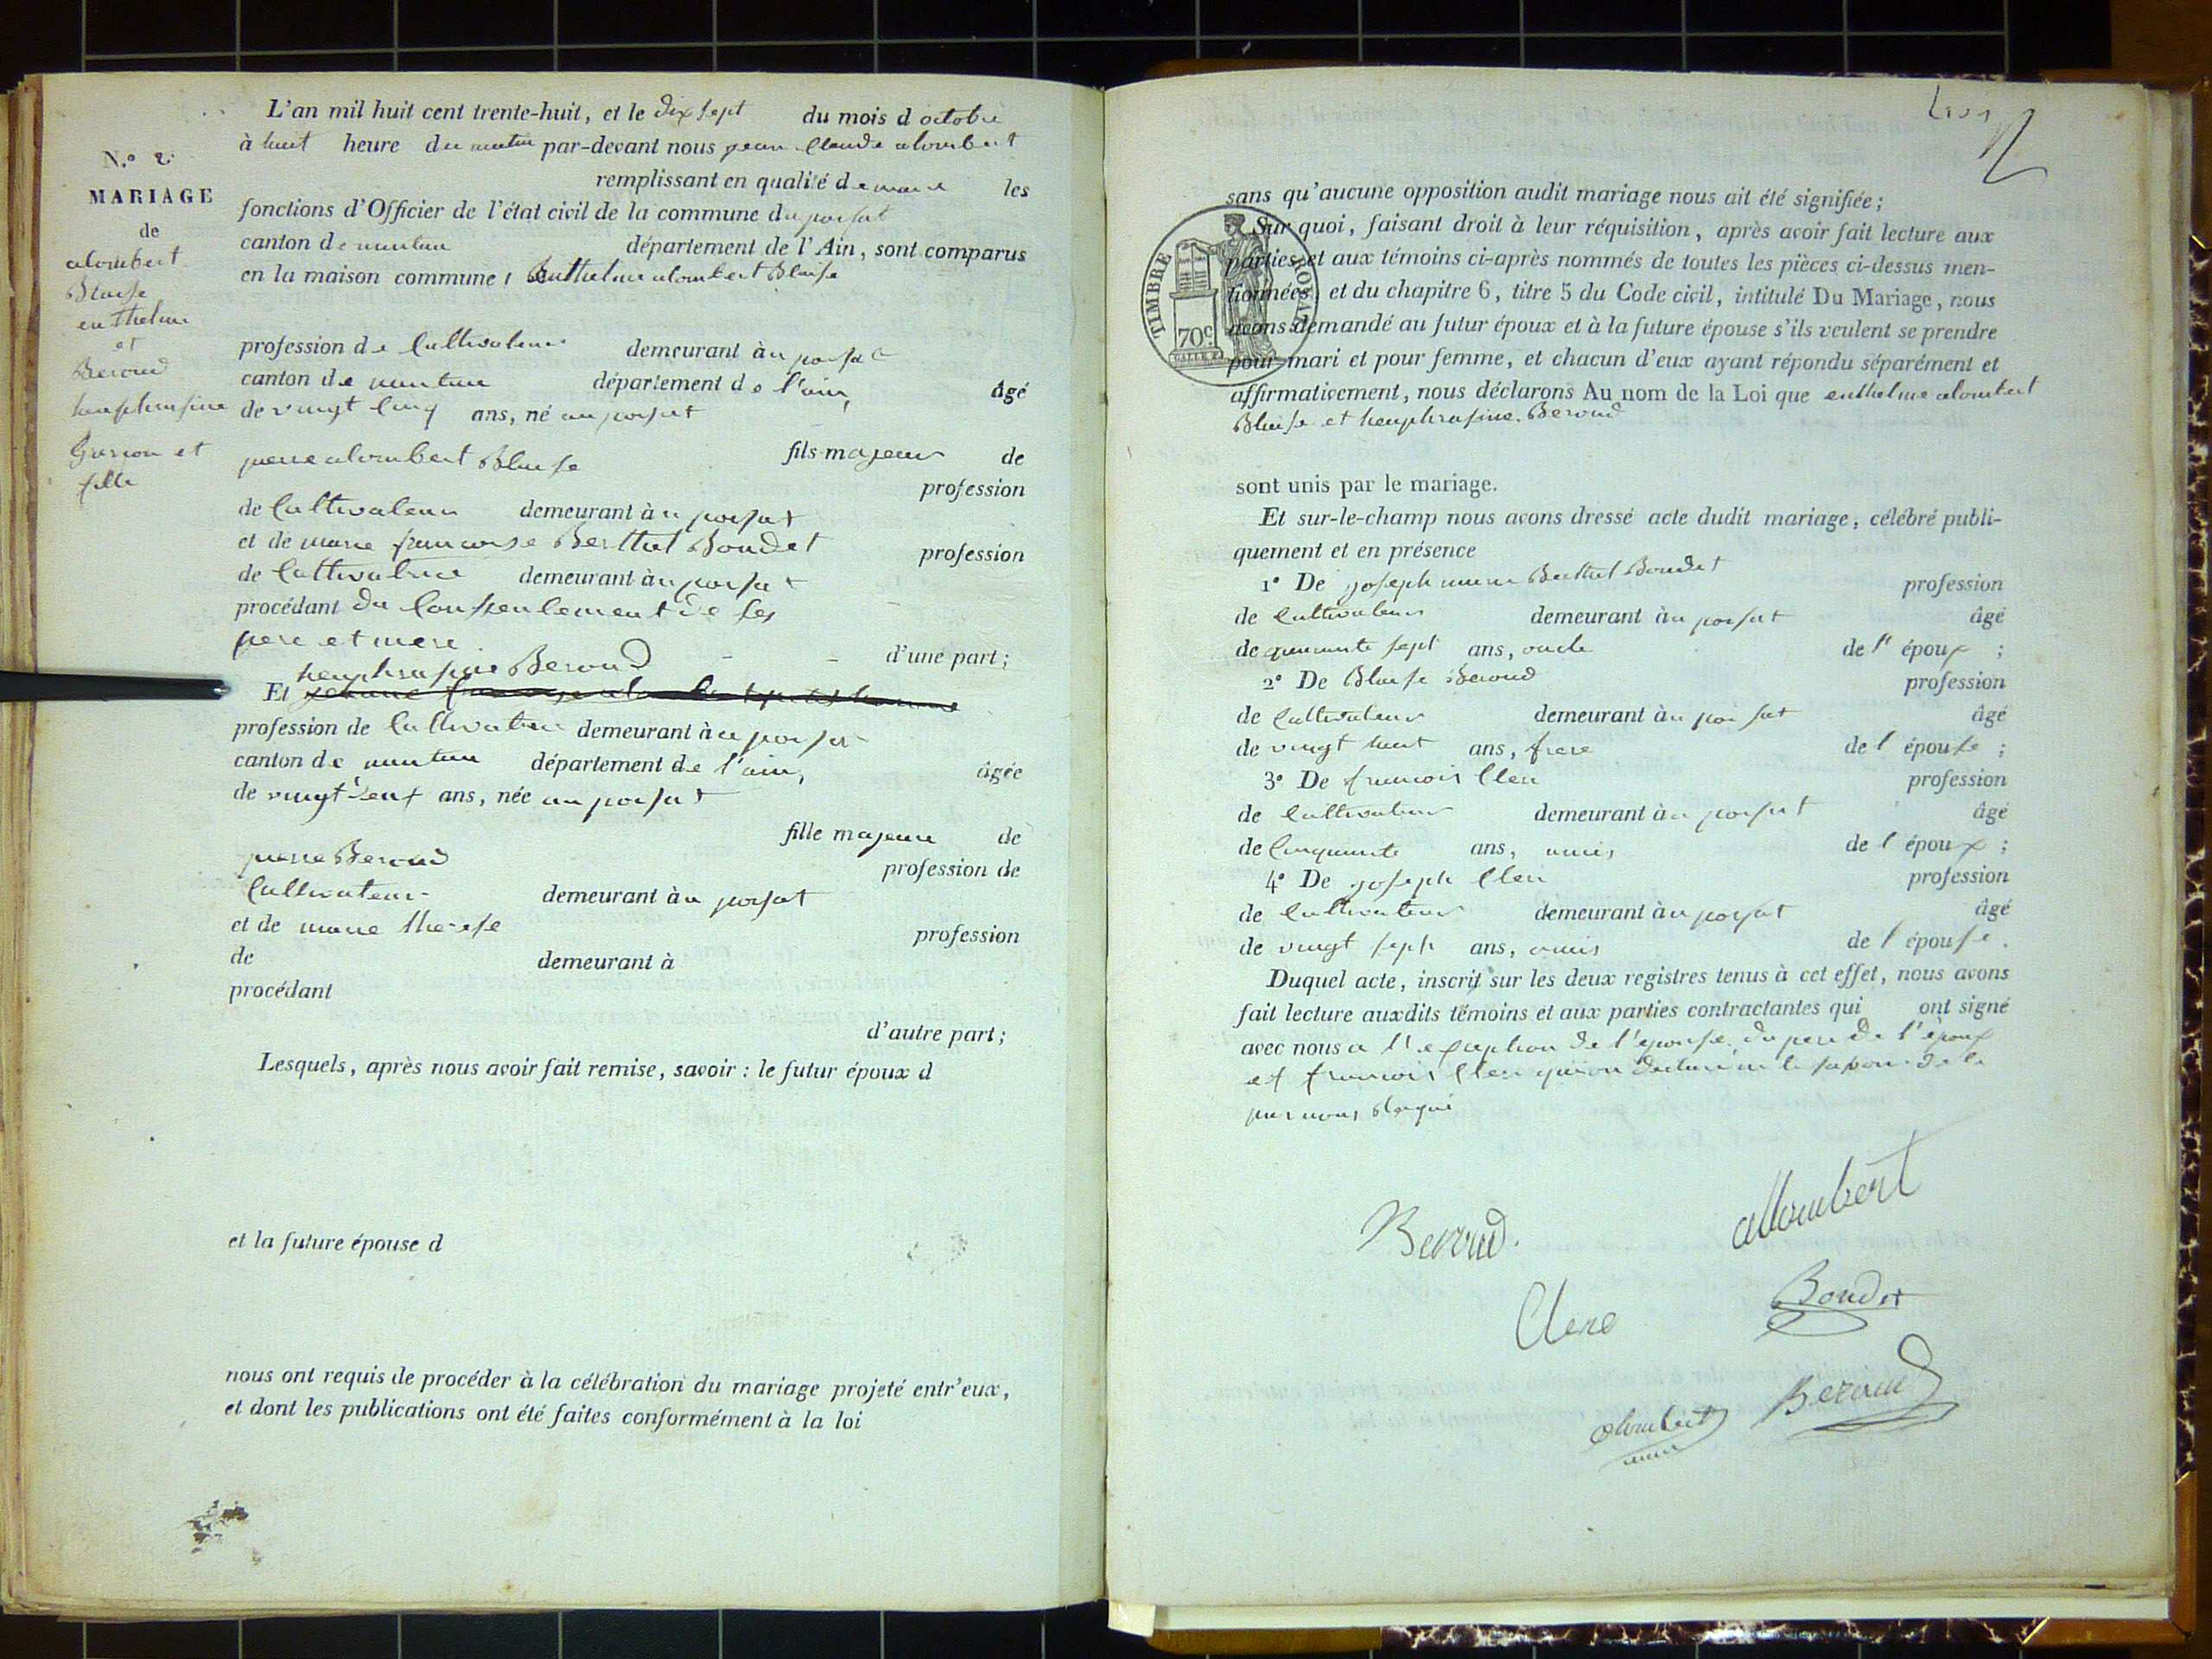 N.° 2
MARIAGE
de
alombert
Blaise
enthelme
et
Beroud
heuphrasine
Garcon et
fille
L'an mil huit cent trente-huit, et le dix sept du mois d octobre
à huit heure du matin par-devant nous jean Claude alombert
remplissant en qualité de maire les
fonctions d'Officier de l'état civil de la commune du poisat
canton de nantua département de l'Ain, sont comparus
en la maison commune, Enthelme alombert Blaise
profession de Cultivateur demeurant àu poisat
canton de nantua département de l'ain, âgé
de vingt cinq ans, né au poisat
fils majeur de
pierre alombert Blaise
profession
de Cultivateur demeurant àu poisat
et de marie francoise Berthet Bondet profession
de Cultivatrice demeurant àu poisat
procédant du Consentement de ses
pere et mere
d'une part;
heuphrasine Beroud
Et
profession de Cultivatrice demeurant àu poisat
canton de nantua département de l'ain, âgée
de vingt neuf ans, née au poisat
fille majeure de
pierre Beroud profession de
Cultivateur demeurant àu poisat
et de marie therese profession
de demeurant à
procédant
d'autre part;
Lesquels, après nous avoir fait remise, savoir : le futur époux d
et la future épouse d
nous ont requis de procéder à la célébration du mariage projeté entr'eux,
et dont les publications ont été faites conformément à la loi
sans qu'aucune opposition audit mariage nous ait été signifiée;
TIMBRE ROYAL
70c
Sur quoi, faisant droit à leur réquisition, après avoir fait lecture aux
parties et aux témoins ci-après nommés de toutes les pièces ci-dessus men-
tionnées, et du chapitre 6, titre 5 du Code civil, intitulé Du Mariage, nous
avons demandé au futur époux et à la future épouse s'ils veulent se prendre
pour mari et pour femme, et chacun d'eux ayant répondu séparément et
affirmativement, nous déclarons Au nom de la Loi que enthelme alombert
Blaise et heuphrasine Beroud
sont unis par le mariage.
Et sur-le-champ nous avons dressé acte dudit mariage, célébré publi-
quement et en présence
1° De joseph marie Berthet Bondet profession
de Cultivateur demeurant àu poisat âgé
de quarante sept ans, oncle de l' époux ;
2° De Blaise Beroud profession
de Cultivateur demeurant àu poisat âgé
de vingt huit ans, frere de l épouse ;
3° De francois Clerc profession
de Cultivateur demeurant àu poisat âgé
de Cinquante ans, amis de l époux ;
4° De joseph Clerc profession
de Cultivateur demeurant àu poisat âgé
de vingt sept ans, amis de l épouse.
Duquel acte, inscrit sur les deux registres tenus à cet effet, nous avons
fait lecture auxdits témoins et aux parties contractantes qui ont signé
avec nous a l'exception de l'épouse du pere de l'époux
et francois Clerc qui on declaré ne le savoir de ce
par nous requi
Beroud.
allombert
Clerc
Bondet
alombert
maire
Beroud